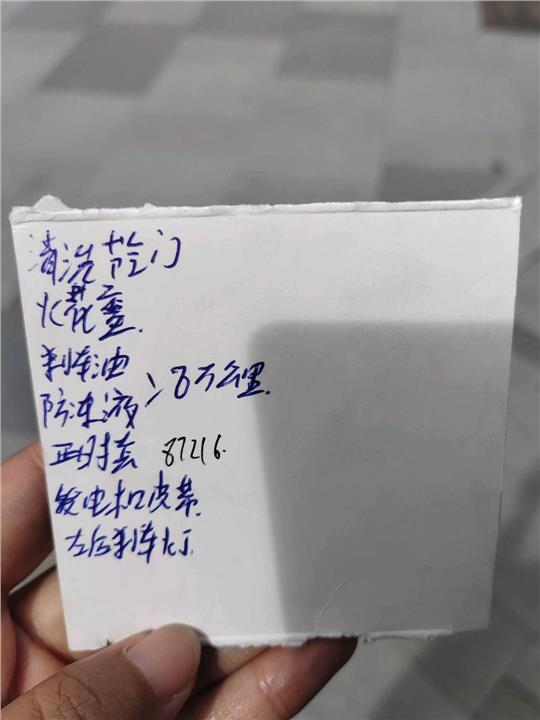 清洗节门
火花塞
刹车油
防冻液 > 8万公里
正时套 87216.
发电机皮带
左后刹车灯